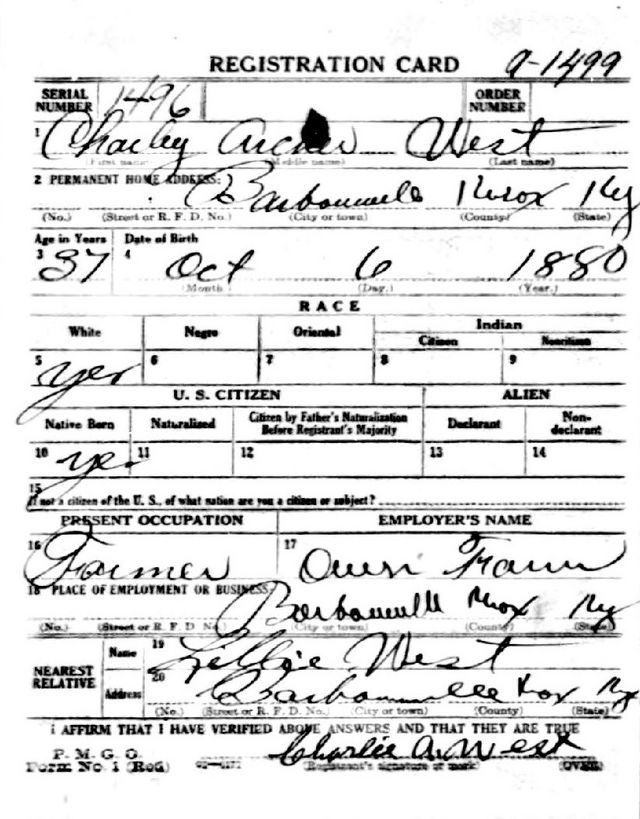 REGISTRATION CARD 9-1499
SERIAL NUMBER 1496 ORDER NUMBER
1 Charley Archer West
(First name) (Middle name) (Last name)
2 PERMANENT HOME ADDRESS: Barbourville Knox Ky
(No.) (Street or R. F. D. No.) (City or town) (County) (State)
Age in Years Date of Birth
3 37 4 Oct 6 1880
(Month) (Day.) (Year.)
RACE
White Negro Oriental Indian
Citizen Noncitizen
5 yes 6 7 8 9
U. S. CITIZEN ALIEN
Native Born Naturalized Citizen by Father's Naturalization Before Registrant's Majority Declarant Non-declarant
10 yes 11 12 13 14
15
If not a citizen of the U. S., of what nation are you a citizen or subject?
PRESENT OCCUPATION EMPLOYER'S NAME
16 Farmer 17 Own Farm
18 PLACE OF EMPLOYMENT OR BUSINESS: Barbourville Knox Ky
(No.) (Street or R. F. D. No.) (City or town) (County) (State)
NEAREST RELATIVE Name 19 Lillie West
Address 20 Barbourville Knox Ky
(No.) (Street or R. F. D. No.) (City or town) (County) (State)
I AFFIRM THAT I HAVE VERIFIED ABOVE ANSWERS AND THAT THEY ARE TRUE
P. M. G. O.
Form No. 1 (Red) Charlie A. West
(Registrant's signature or mark) (OVER)